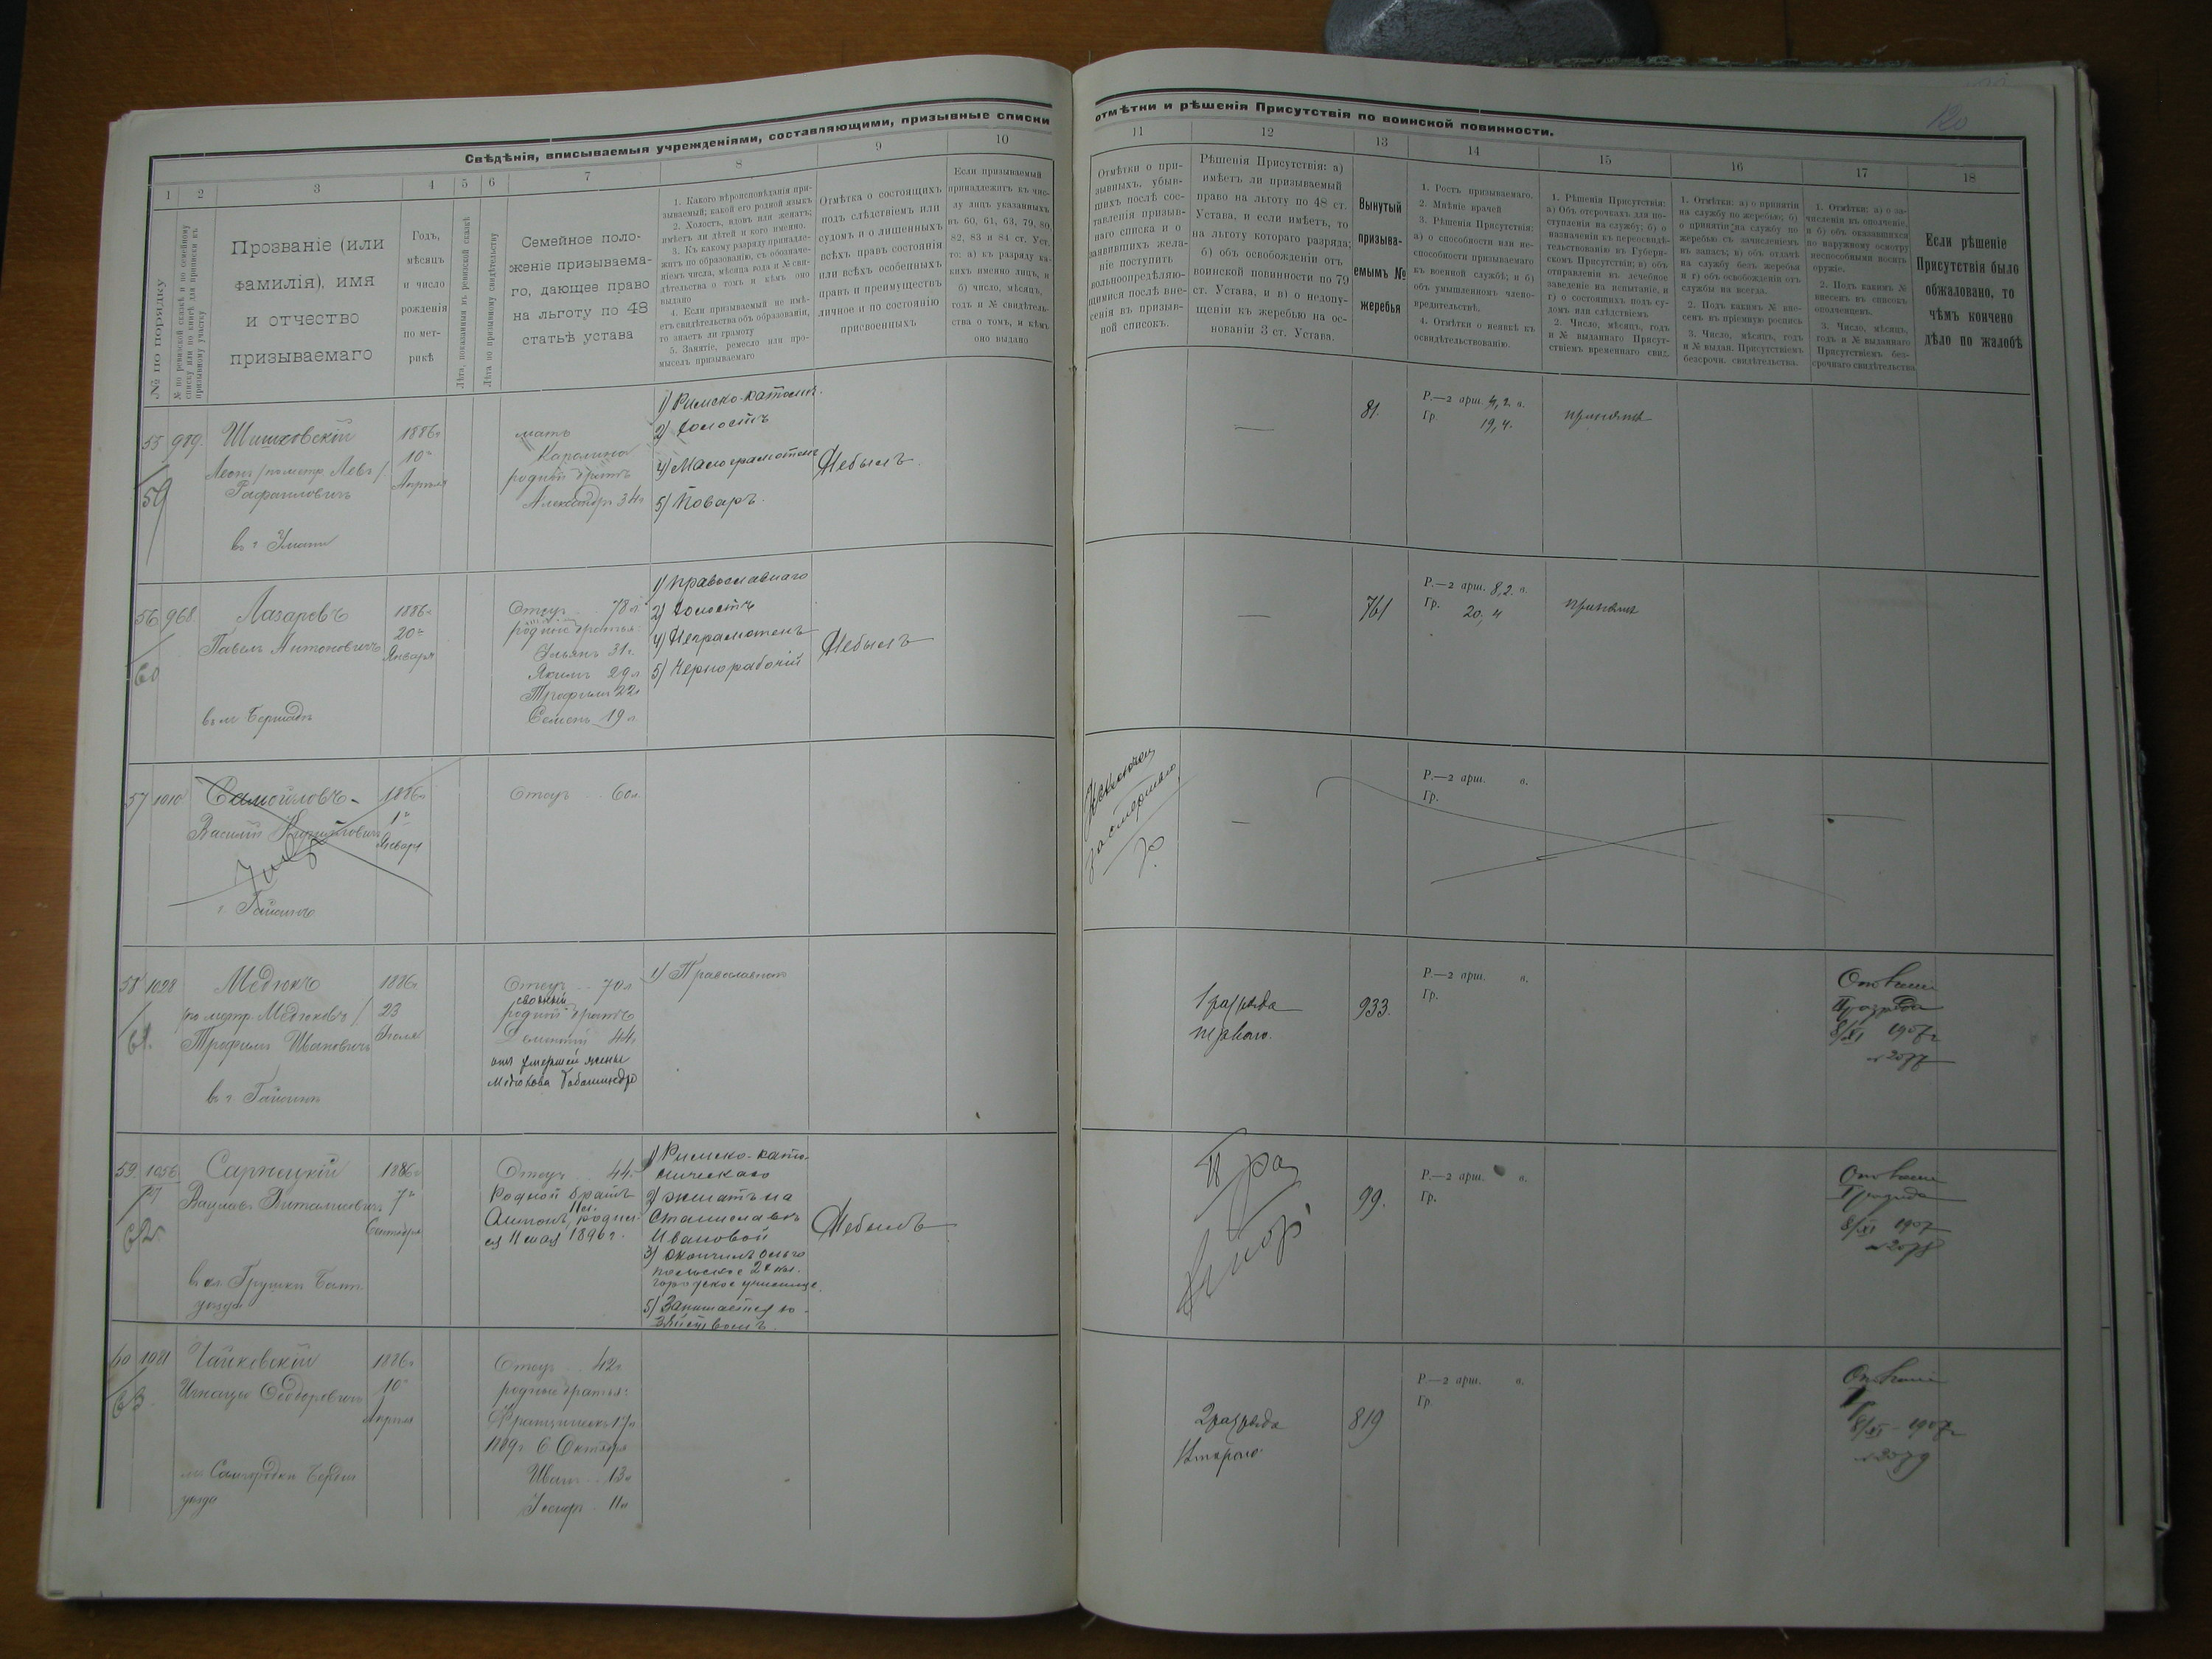 Свѣдѣнія, вписываемыя учрежденіями, составляющими, призывные списки
отмѣтки и рѣшенія Присутствія по воинской повинности.
120
1 2 3 4 5 6 7 8 9 10
11 12 13 14 15 16 17 18
№ по порядку
№ по ревизской сказкѣ и по семейному
списку или по книгѣ для приписки къ
призывному участку
Прозваніе (или
фамилія), имя
и отчество
призываемаго
Годъ,
мѣсяцъ
и число
рожденія
по мет-
рикѣ
Лѣта, показанныя въ ревизской сказкѣ
Лѣта по призывному свидѣтельству
Семейное поло-
женіе призываема-
го, дающее право
на льготу по 48
статьѣ устава
1. Какого вѣроисповѣданія при-
зываемый; какой его родной языкъ
2. Холостъ, вдовъ или женатъ;
имѣетъ ли дѣтей и кого именно.
3. Къ какому разряду принадле-
житъ по образованію, съ обозначе-
ніемъ числа, мѣсяца, года и № сви-
дѣтельства о томъ и кѣмъ оно
выдано
4. Если призываемый не имѣ-
етъ свидѣтельства объ образованіи,
то знаетъ ли грамоту
5. Занятіе, ремесло или про-
мыселъ призываемаго
Отмѣтка о состоящихъ
подъ слѣдствіемъ или
судомъ и о лишенныхъ
всѣхъ правъ состоянія
или всѣхъ особенныхъ
правъ и преимуществъ
личное и по состоянію
присвоенныхъ
Если призываемый
принадлежитъ къ чис-
лу лицъ указанныхъ
въ 60, 61, 63, 79, 80
82, 83 и 84 ст. Уст.
то: а) къ разряду ка-
кихъ именно лицъ, и
б) число, мѣсяцъ,
годъ и № свидѣтель-
ства о томъ, и кѣмъ
оно выдано
Отмѣтки о при-
зывныхъ, убыв-
шихъ послѣ сос-
тавленія призыв-
наго списка и о
заявившихъ жела-
ніе поступить
вольноопредѣляю-
щимися послѣ вне-
сенія въ призыв-
ной списокъ.
Рѣшенія Присутствія: а)
имѣетъ ли призываемый
право на льготу по 48 ст.
Устава, и если имѣетъ, то
на льготу котораго разряда;
б) объ освобожденіи отъ
воинской повинности по 79
ст. Устава, и в) о недопу-
щеніи къ жеребью на ос-
нованіи 3 ст. Устава.
Вынутый
призыва-
емымъ №
жеребья
1. Ростъ призываемаго.
2. Мнѣніе врачей
3. Рѣшенія Присутствія:
а) о способности или не-
способности призываемаго
къ военной службѣ; и б)
объ умышленномъ члено-
вредительствѣ.
4. Отмѣтки о неявкѣ къ
освидѣтельствованію.
1. Рѣшенія Присутствія:
а) Объ отсрочкахъ для по-
ступленія на службу; б) о
назначеніи къ переосвидѣ-
тельствованію въ Губерн-
скомъ Присутствіи; в) объ
отправленіи въ лечебное
заведеніе на испытаніе, и
г) о состоящихъ подъ су-
домъ или слѣдствіемъ
2. Число, мѣсяцъ, годъ
и № выданнаго Присут-
ствіемъ временнаго свид.
1. Отмѣтки: а) о принятіи
на службу по жеребью; б)
о принятіи на службу по
жеребью съ зачисленіемъ
въ запасъ; в) объ отдачѣ
на службу безъ жеребья
и г) объ освобожденіи отъ
службы на всегда.
2. Подъ какимъ № вне-
сенъ въ пріемную роспись
3. Число, мѣсяцъ, годъ
и № выдан. Присутствіемъ
безсрочн. свидѣтельства.
1. Отмѣтки: а) о за-
численіи въ ополченіе,
и б) объ оказавшихся
по наружному осмотру
неспособными носить
оружіе.
2. Подъ какимъ №
внесенъ въ списокъ
ополченцевъ.
3. Число, мѣсяцъ,
годъ и № выданнаго
Присутствіемъ без-
срочнаго свидѣтельства
Если рѣшеніе
Присутствія было
обжаловано, то
чѣмъ кончено
дѣло по жалобѣ
55 989.
59
Шишковскій
Леонъ /по метр. Левъ/
Рафаиловичъ
въ г. Умани
1886 г
10го
Апрѣля
мать
Каролина
родной братъ
Александръ 34 л
1) Римско-католич.
2) Холостъ
4) Малограмотенъ
5) Поваръ.
Небылъ
81.
Р.—2 арш. 4,2 в.
Гр. 19,4.
принятъ
56 968
60
Лазаревъ
Павелъ Антоновичъ
въ м. Бершадь
1886 г
20го
Января
Отецъ 78 л
родные братья:
Ульянъ 31 г.
Якимъ 29 л
Трофимъ 22 г
Семенъ 19 л.
1) Православнаго
2) Холостъ
4) Неграмотенъ
5) Чернорабочій
Небылъ
761
Р.—2 арш. 8,2 в.
Гр. 20,4
принятъ
57 1010
Самойловъ
Василій
г. Гайсинъ
1886 г
1го
Января
Отецъ 60 л.
Исключенъ
за смертію
Р.—2 арш. в.
Гр.
58 1028
61.
Медюкъ
/по метр. Медюковъ/
Трофимъ Ивановичъ
въ г. Гайсинѣ
1886 г
23
Іюля
Отецъ 70 л
сводный
родной братъ
Дементій 44 г
отъ умершей жены
1) Православнаго
1 разряда
перваго.
933.
Р.—2 арш. в.
Гр.
8/XI 1907 г
№ 2077
59. 1056
62
Сарнецкій
Вацлавъ Витальевичъ
въ с. Грушки Балт.
уѣзда
1886 г
7го
Сентября
Отецъ 44 г.
Родной братъ
11 л.
Антонъ, родил-
ся 11 мая 1896 г.
1) Римско-като-
лическаго
2) женатъ на
Станиславѣ
Ивановой
3) окончилъ Ольго
польское 2х кл.
городское училище.
5) Занимается хо-
зяйствомъ.
Небылъ
II раз
Втор
99.
Р.—2 арш. в.
Гр.
8/XI 1907
№ 2078
60 1081
63
Чайковскій
Игнацы Ѳедоровичъ
м. Самгородокъ Бердич
уѣзда
1886 г
10го
Апрѣля
Отецъ 42 г.
родные братья:
Францишекъ 17 л
1889 г 6 Октября
Иванъ 13 л
Іосифъ 11 л
2 разряда
Второго
819
Р.—2 арш. в.
Гр.
8/XI 1907 г
№ 2079